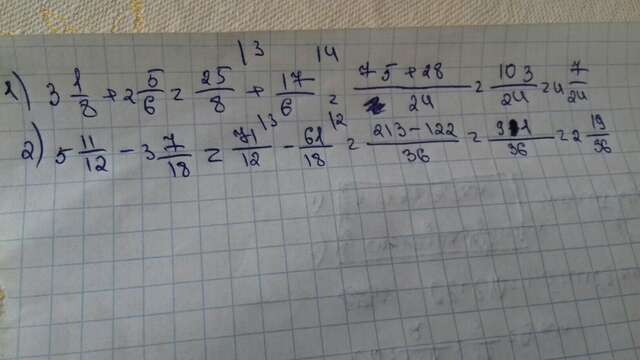 1) 3 1/8 + 2 5/6 = 25/8 |3 + 17/6 |4 = 75+28/24 = 103/24 = 4 7/24
2) 5 11/12 - 3 7/18 = 71/12 |3 - 61/18 |2 = 213-122/36 = 91/36 = 2 19/36